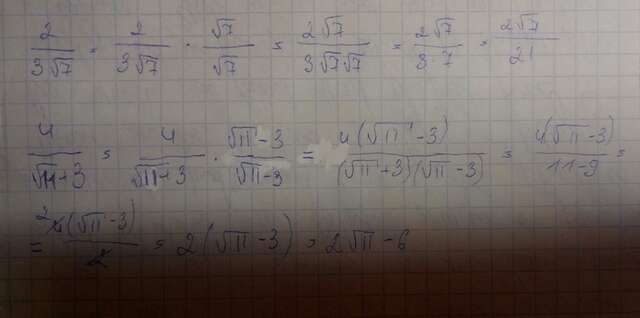 2/(3√7) = 2/(3√7) · √7/√7 = 2√7/(3√7√7) = 2√7/(3·7) = 2√7/21
4/(√11+3) = 4/(√11+3) · (√11-3)/(√11-3) = 4(√11-3)/((√11+3)(√11-3)) = 4(√11-3)/(11-9) =
= 2 4(√11-3)/2 = 2(√11-3) = 2√11-6